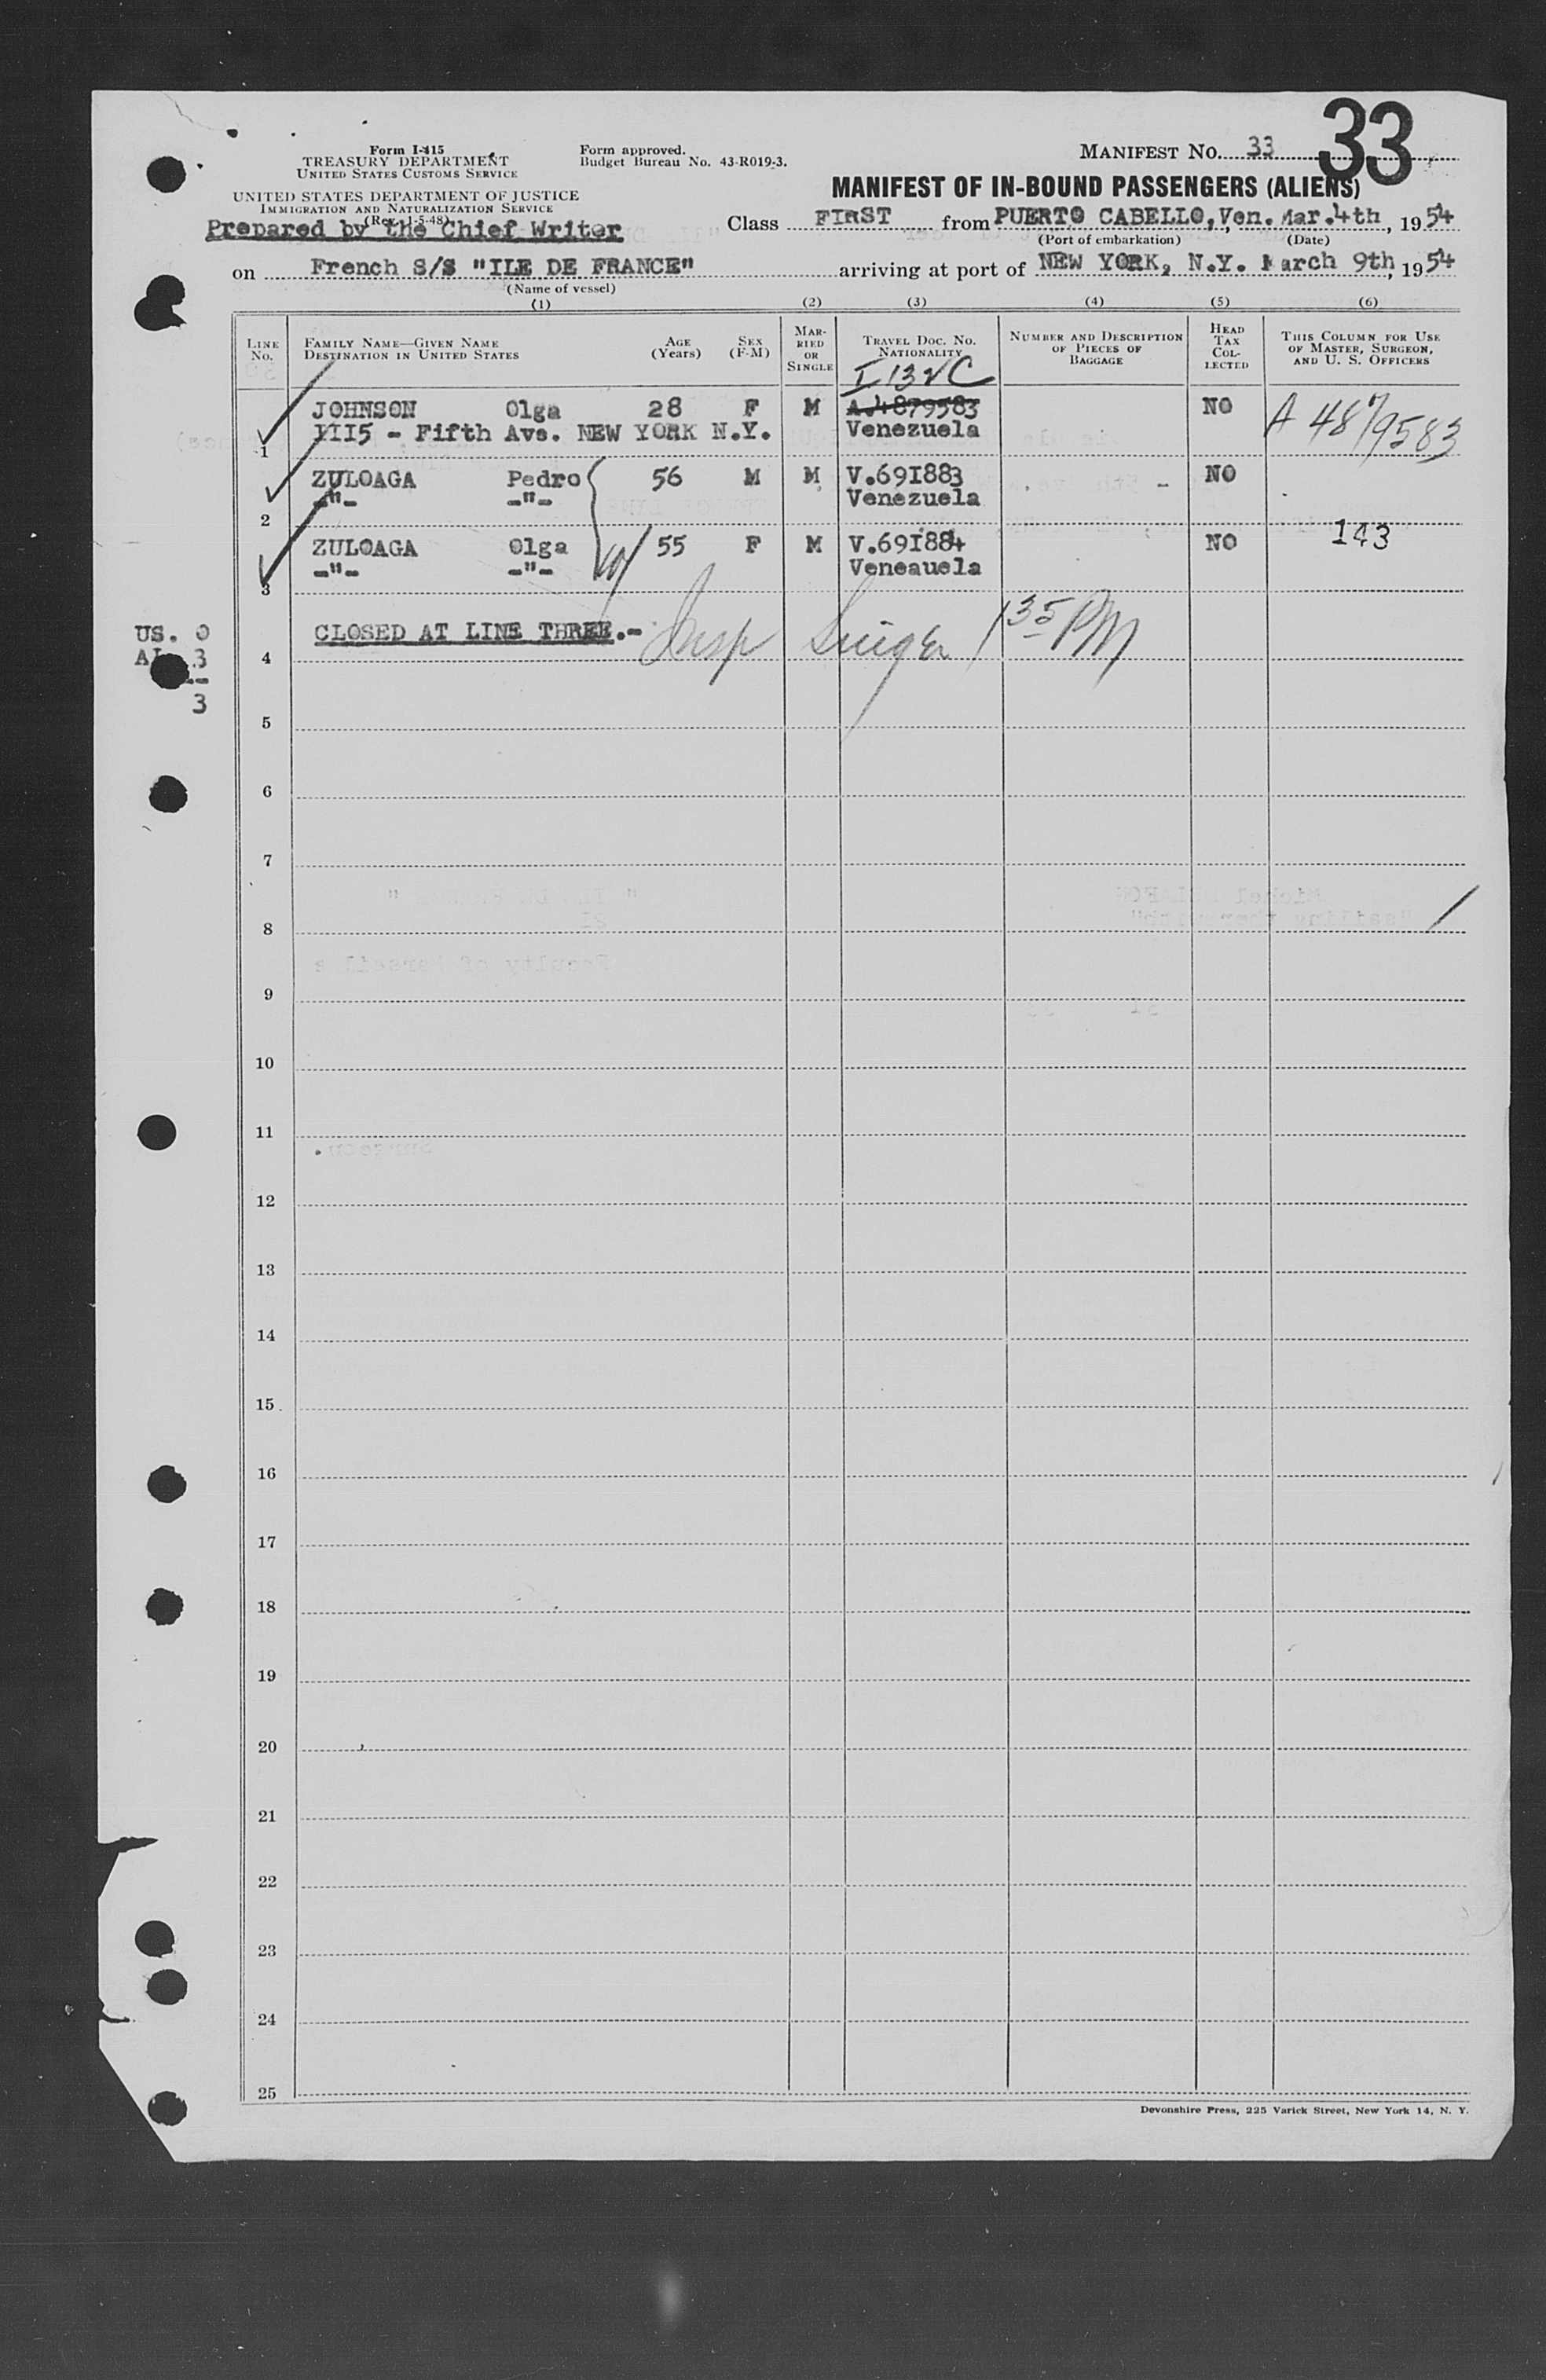 33
Form I-415
TREASURY DEPARTMENT
UNITED STATES CUSTOMS SERVICE
Form approved.
Budget Bureau No. 43-R019-3.
MANIFEST NO. 33
UNITED STATES DEPARTMENT OF JUSTICE
IMMIGRATION AND NATURALIZATION SERVICE
(Rev. 1-5-48)
MANIFEST OF IN-BOUND PASSENGERS (ALIENS)
Prepared by the Chief Writer
Class FIRST from PUERTO CABELLO, Ven. Mar.4th, 1954
(Port of embarkation) (Date)
on French S/S "ILE DE FRANCE" arriving at port of NEW YORK, N.Y. March 9th, 1954
(Name of vessel)
(1) (2) (3) (4) (5) (6)
LINE NO.
FAMILY NAME—GIVEN NAME
DESTINATION IN UNITED STATES
AGE (Years)
SEX (F-M)
MARRIED OR SINGLE
TRAVEL DOC. NO.
NATIONALITY
NUMBER AND DESCRIPTION OF PIECES OF BAGGAGE
HEAD TAX COLLECTED
THIS COLUMN FOR USE OF MASTER, SURGEON, AND U. S. OFFICERS
I 132 C
JOHNSON Olga 28 F M A.4879583 NO A 4879583
1 III5 - Fifth Ave. NEW YORK N.Y. Venezuela
ZULOAGA Pedro 56 M M V.69I883 NO
-"- -"- Venezuela
2
ZULOAGA Olga 55 F M V.69I884 NO 143
-"- -"- Veneauela
3
US. 0
3
--
3
CLOSED AT LINE THREE.- Insp Singer 1 35 PM
4
5
6
7
8
9
10
11
12
13
14
15
16
17
18
19
20
21
22
23
24
25
Devonshire Press, 225 Varick Street, New York 14, N. Y.